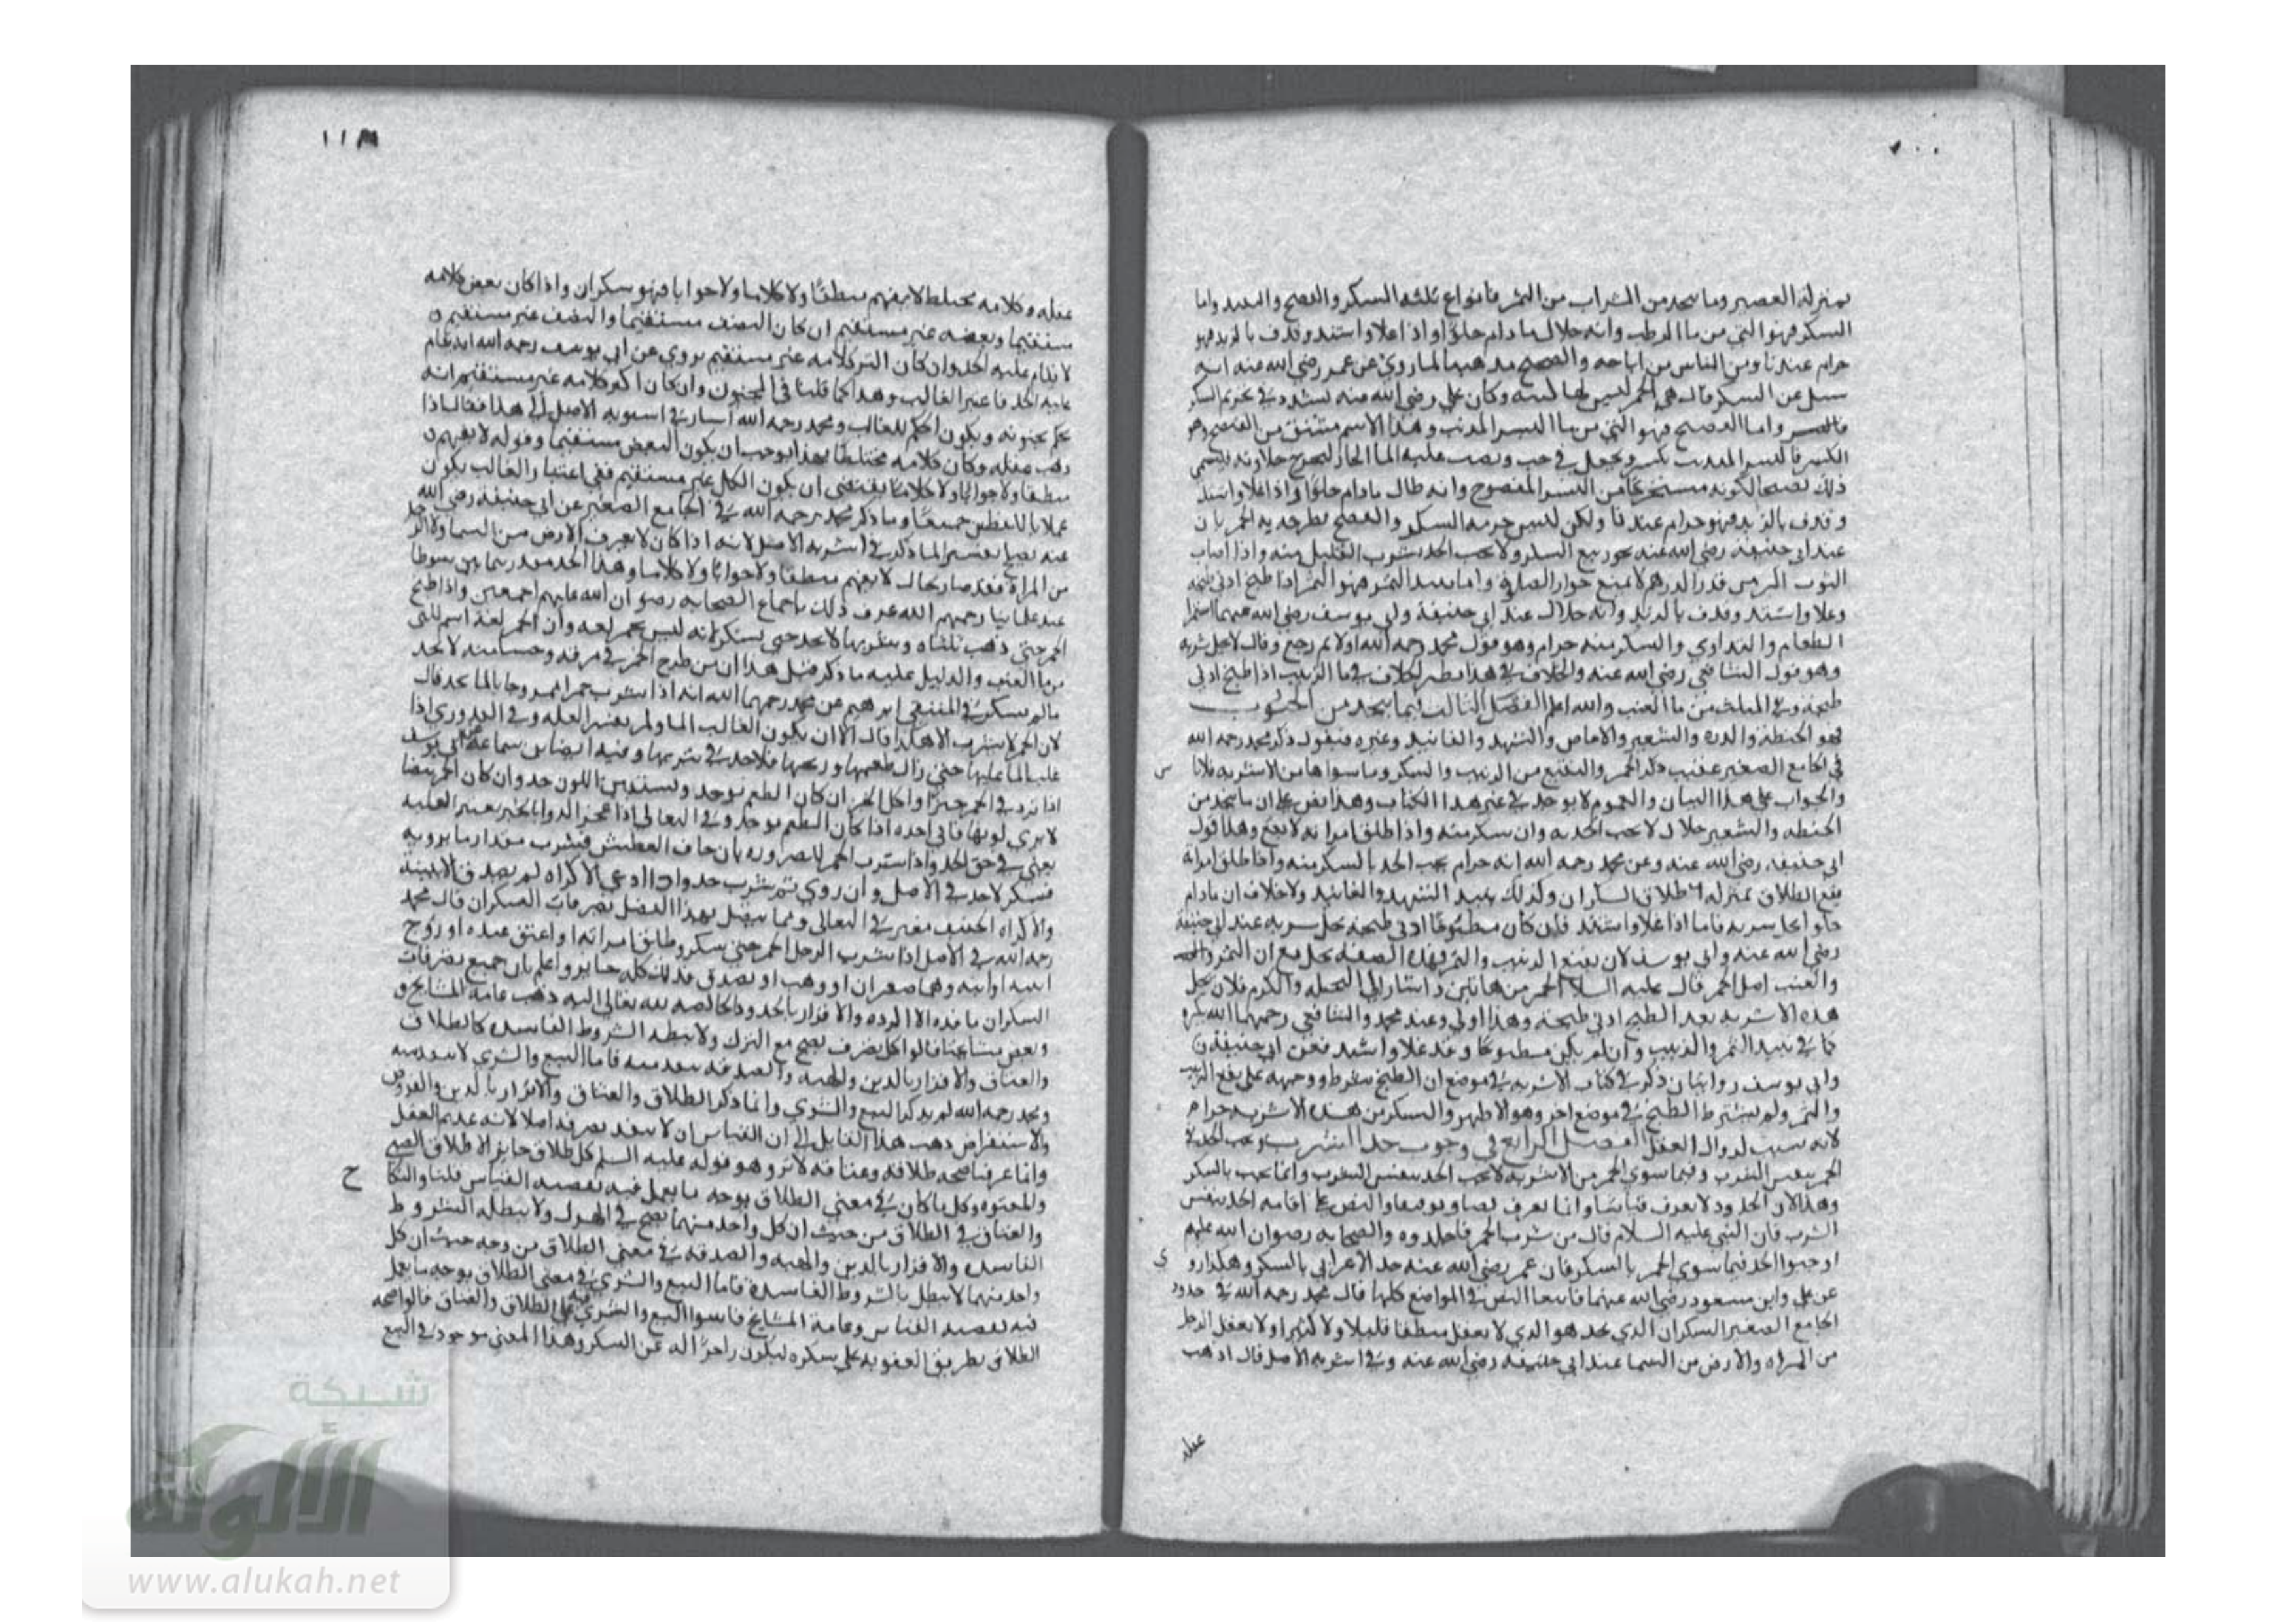 بمنزلة العصير وما يتخذ من الشراب من التمر فانواع ثلثه السكر والفضيخ والنبيذ واما
السكر فهو التي من ما الرطب وانه حلال ما دام حلوا واذا غلا واشتد وقذف بالزبد فهو
حرام عندنا ومن الناس من اباحه والصحيح مذهبنا لما روي عن عمر رضي الله عنه انه
سيل عن السكر فقال هي الخمر ليس لها كنيه وكان علي رضي الله عنه يشدد في تحريم السكر
واما الفضيخ فهو التي من ما البسر المذنب وهذا الاسم مشتق من الفضيخ وهو
الكسر فالبسر المذنب يكسر ويجعل في حب ويصب عليه الما الحار لتخرج حلاوته فيسمى
ذلك فضيخا لكونه مستخرجا من البسر المفضوخ وانه حلال مادام حلوا واذا غلا واشتد
وقذف بالزبد فهو حرام عندنا ولكن ليس حرمه السكر والفضيخ نظير حرمة الخمر بان
عند ابي حنيفه رضي الله عنه يجوز بيع السكر ولا يجب الحد بشرب القليل منه واذا اصاب
الثوب اكثر من قدر الدرهم لا يمنع جواز الصلوة واما نبيذ التمر فهو التمر اذا طبخ ادنى طبخه
وغلا واشتد وقذف بالزبد وانه حلال عند ابي حنيفة وابي يوسف رضي الله عنهما استمرا
الطعام والتداوي والسكر منه حرام وهو قول محمد رحمه الله اولا ثم رجع وقال لا يحل شربه
وهو قول الشافعي رضي الله عنه والخلاف في هذا نظير الخلاف في ما الزبيب اذا طبخ ادنى
طبخة وفي المثلث من ما العنب والله اعلم الفصل الثالث فيما يتخذ من الحبوب
فهو الحنطة والذره والشعير والاجاص والشهد والفانيد وغيره فنقول ذكر محمد رحمه الله
في الجامع الصغير عقيب ذكر الخمر والنقيع من الزبيب والسكر وما سواها من الاشربه فلا باس
والجواب على هذا البيان والعموم لا يوجد في غير هذا الكتاب وهذا نص على ان ما يتخذ من
الحنطه والشعير حلال لا يجب الحد به وان سكر منه واذا طلق امراته لا يقع وهذا قول
ابي حنيفه رضي الله عنه وعن محمد رحمه الله انه حرام يجب الحد بالسكر منه واذا طلق امراته
يقع الطلاق بمنزلة طلاق السكران وكذلك نبيذ الشهد والفانيد ولا خلاف ان مادام
حلوا يحل شربه فاما اذا غلا واشتد فان كان مطبوخا ادنى طبخه يحل شربه عند ابي حنيفة
رضي الله عنه وابي يوسف لان نقيع الزبيب والتمر بهذه الصفة يحل مع ان التمر
والعنب اصل الخمر قال عليه السلم الخمر من هاتين واشار الى النخله والكرم فلان يحل
هذه الاشربه بعد الطبخ ادنى طبخة وهذا اولى وعند محمد والشافعي رحمهما الله يكره
كما في نبيذ التمر والزبيب وان لم يكن مطبوخا وقد غلا واشتد فعن ابي حنيفة
وابي يوسف روايتان ذكر في كتاب الاشربه في موضع ان الطبخ شرط ووجهه على نقيع الزبيب
والتمر ولم يشترط الطبخ في موضع اخر وهو الاظهر والسكر من هذه الاشربه حرام
لانه سبب لزوال العقل الفصل الرابع في وجوب حد الشرب ويجب الحد في
الخمر بنفس الشرب وفيما سوى الخمر من الاشربه لا يجب الحد بنفس الشرب وانما يجب بالسكر
وهذا لان الحدود لا يعرف قياسا وانما يعرف نصا وتوقيفا والنص على اقامة الحد بنفس
الشرب فان النبي عليه السلام قال من شرب الخمر فاجلدوه والصحابه رضوان الله عليهم
اوجبوا الحد فيما سوى الخمر بالسكر فان عمر رضي الله عنه حد الاعرابي بالسكر وهكذا روي
عن علي وابن مسعود رضي الله عنهما فاتبعنا النص في المواضع كلها قال محمد رحمه الله في حدود
الجامع الصغير السكران الذي يحد هو الذي لا يعقل منطقا قليلا ولا كثيرا ولا يعقل الرجل
من المراه والارض من السما عند ابي حنيفه رضي الله عنه وفي اشربه الاصل قال اذا ذهب
عقله
١١٨
عقله وكلامه مختلط لا يفهم منطقا ولا كلاما ولا جوابا فهو سكران واذا كان بعض كلامه
مستقيما وبعضه غير مستقيم ان كان النصف مستقيما والنصف غير مستقيم
لا يقام عليه الحد وان كان اكثر كلامه غير مستقيم روي عن ابي يوسف رحمه الله انه يقام
عليه الحد فاعتبر الغالب وهذا كما قلنا في المجنون وان كان اكثر كلامه غير مستقيم انه
حكم بجنونه ويكون الحكم للغالب ومحمد رحمه الله اشار في اشربه الاصل الى هذا فقال اذا
ذهب عقله وكان كلامه مختلطا بهذا يوجب ان يكون البعض مستقيما وقوله لا يفهم
منطقا ولا جوابا ولا كلاما يقتضي ان يكون الكل غير مستقيم ففي اعتبار الغالب يكون
عملا باللفظين جميعا وما ذكر محمد رحمه الله في الجامع الصغير عن ابي حنيفة رضي الله
عنه يصلح تفسيرا لما ذكر في اشربه الاصل لانه اذا كان لا يعرف الارض من السما ولا الرجل
من المراة فقد صار بحال لا يفهم منطقا ولا جوابا ولا كلاما وهذا الحد مقدر بثمانين سوطا
عند علمائنا رحمهم الله عرف ذلك باجماع الصحابه رضوان الله عليهم اجمعين واذا طبخ
الخمر حتى ذهب ثلثاه وشربها لا يحد حتى يسكر لانه ليس بخمر لغه وان الخمر لغة اسم للتي
من ما العنب والدليل عليه ما ذكر قبل هذا ان من طرح الخمر في مرقه وحسا منه لا يحد
مالم يسكر في المنتقى ابرهيم عن محمد رحمهما الله انه اذا شرب خمرا ممزوجا بالما يحد قال
لان الخمر لا يشرب الا هكذا قال الا ان يكون الغالب الما ولم يعتبر الغلبه وفي القدوري اذا
غلب الما عليها حتى زال طعمها وريحها فلا حد في شربها وفيه ايضا ابن سماعة عن ابي يوسف
اذا ثرد في الخمر خبزا واكل الخبز ان كان الطعم يوجد ويستبين اللون حد وان كان الخمر بيضا
لا يرى لونها فاني احده اذا كان الطعم يوجد وفي البقالي اذا عجن الدوا بالخمر يعتبر الغلبه
يعني في حق الحد واذا شرب الخمر للضروره بان خاف العطش فشرب مقدار ما يرويه
فسكر لا حد في الاصل وان روي ثم شرب حد وان ادعى الاكراه لم يصدق الا ببينة
والاكراه الخفيف معتبر في البقالي ومما يتصل بهذا الفصل تصرفات السكران قال محمد
رحمه الله في الاصل اذا شرب الرجل الخمر حتى سكر وطلق امراته او اعتق عبده او زوج
ابنته او ابنه وهما صغيران او وهب او تصدق فذلك كله جايز واعلم بان جميع تصرفات
السكران نافذه الا الرده والاقرار بالحدود الخالصه لله تعالى اليه ذهب عامة المشايخ و
وبعض مشايخنا قالوا كل تصرف يصح مع الهزل ولا يبطله الشروط الفاسده كالطلاق
والعتاق والاقرار بالدين والهبه والصدقه ينفذ منه فاما البيع والشرى لا ينفذ منه
ومحمد رحمه الله لم يذكر البيع والشرى وانما ذكر الطلاق والعتاق والاقرار بالدين والقروض
والاستقراض ذهب هذا القايل الى ان القياس ان لا ينفذ تصرفه اصلا لانه عديم العقل
وانما عرفنا صحه طلاقه وعتاقه بالاثر وهو قوله عليه السلم كل طلاق جايز الا طلاق الصبي
والمعتوه وكل ما كان في معنى الطلاق بوجه ما يعمل فيه بقضيه القياس قلنا والنكاح
والعتاق في الطلاق من حيث ان كل واحد منهما يصح في الهزل ولا يبطله الشروط
الفاسده والاقرار بالدين والهبه والصدقه في معنى الطلاق من وجه حيث ان كل
واحد منهما لا يبطل بالشروط الفاسدة فاما البيع والشرى في معنى الطلاق بوجه ما يعمل
فيه بقضيه القياس وعامة المشايخ قاسوا البيع والشرى على الطلاق والعتاق قالوا صحه
الطلاق بطريق العقوبه على سكره ليكون زاجرا له عن السكر وهذا المعنى موجود في البيع
شبكة
الألوكة
www.alukah.net